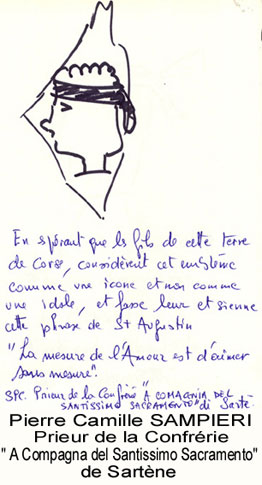 En espérant que les fils de cette terre
de Corse, considèrent cet emblème
comme une icone et non comme
une idole, et fasse leur et sienne
cette phrase de St Augustin
"La mesure de l'Amour est d'aimer
sans mesure".
SPC. Prieur de la Confrérie "A COMAGNIA DEL
SANTISSIMO SACRAMENTO" di Sartè.
Pierre Camille SAMPIERI
Prieur de la Confrérie
" A Compagna del Santissimo Sacramento"
de Sartène